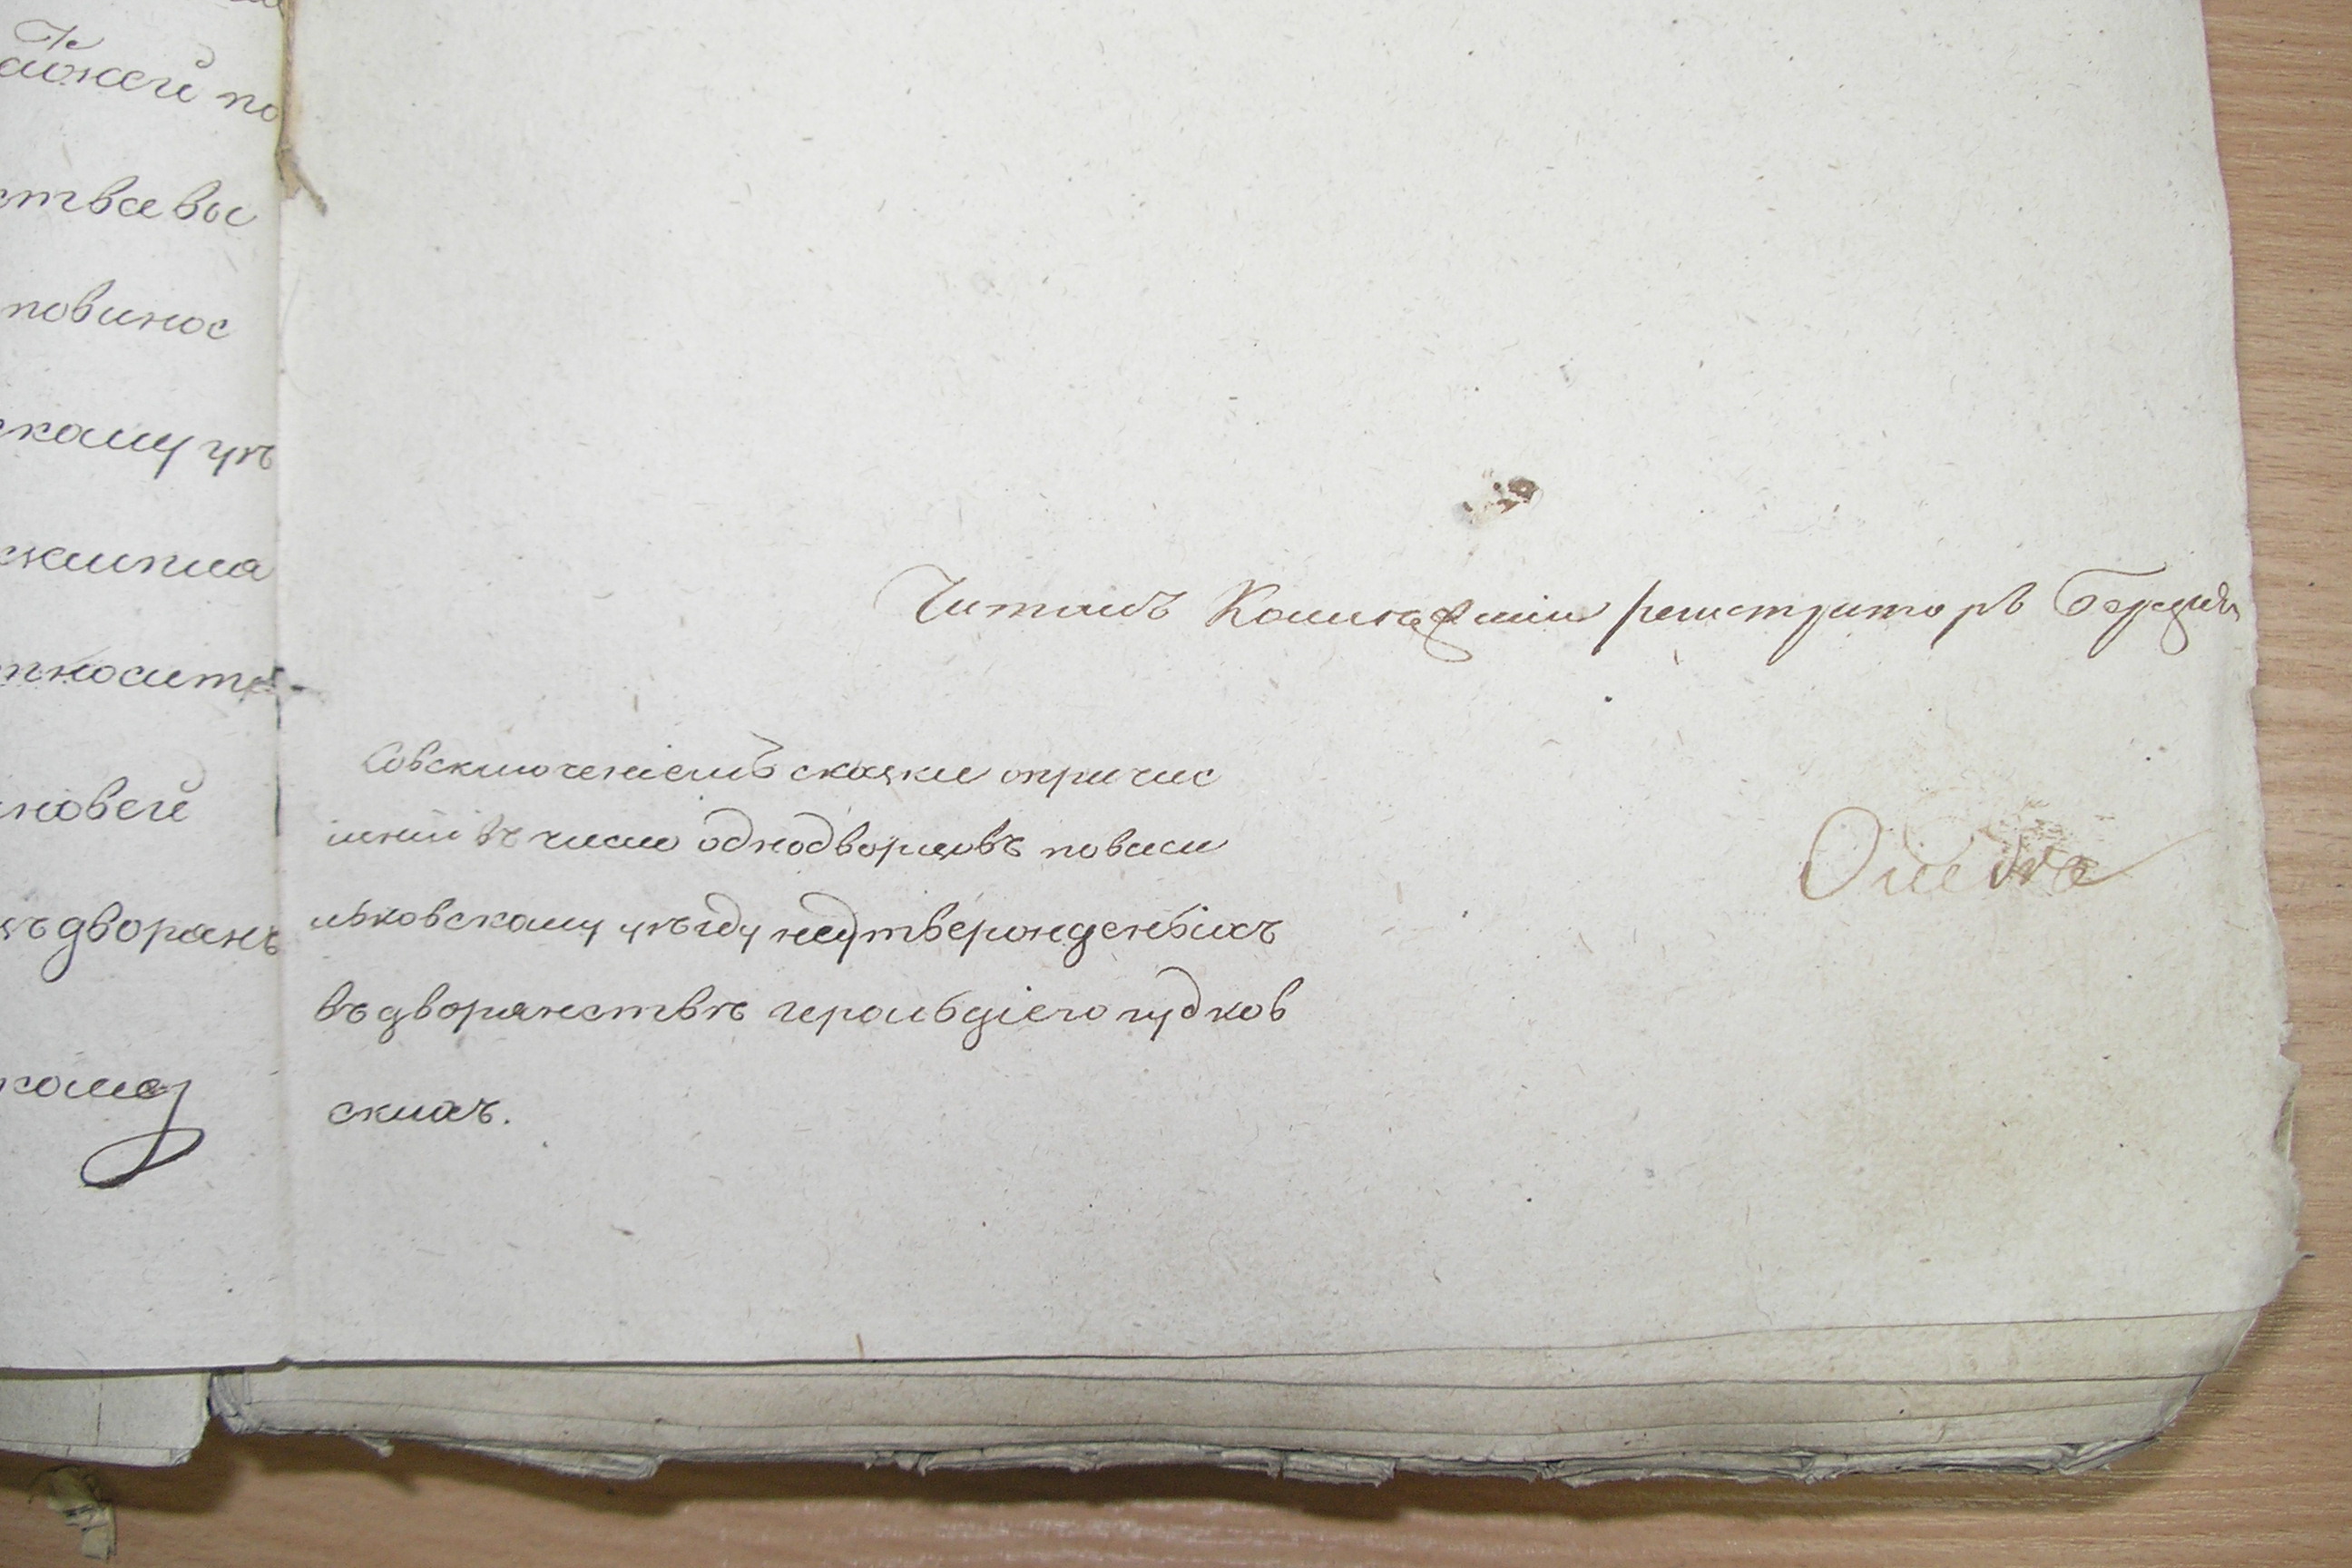 жей по
ства вы
повинос
скому уѣ
относите
новей
дворянъ
Читалъ Коллежскій регистраторъ
Совключеніемъ сказки опричис
леніи въ число однодворцовъ поваси
льковскому уѣзду неутвержденныхъ
въ дворянствѣ герольдіею гудков
скихъ.